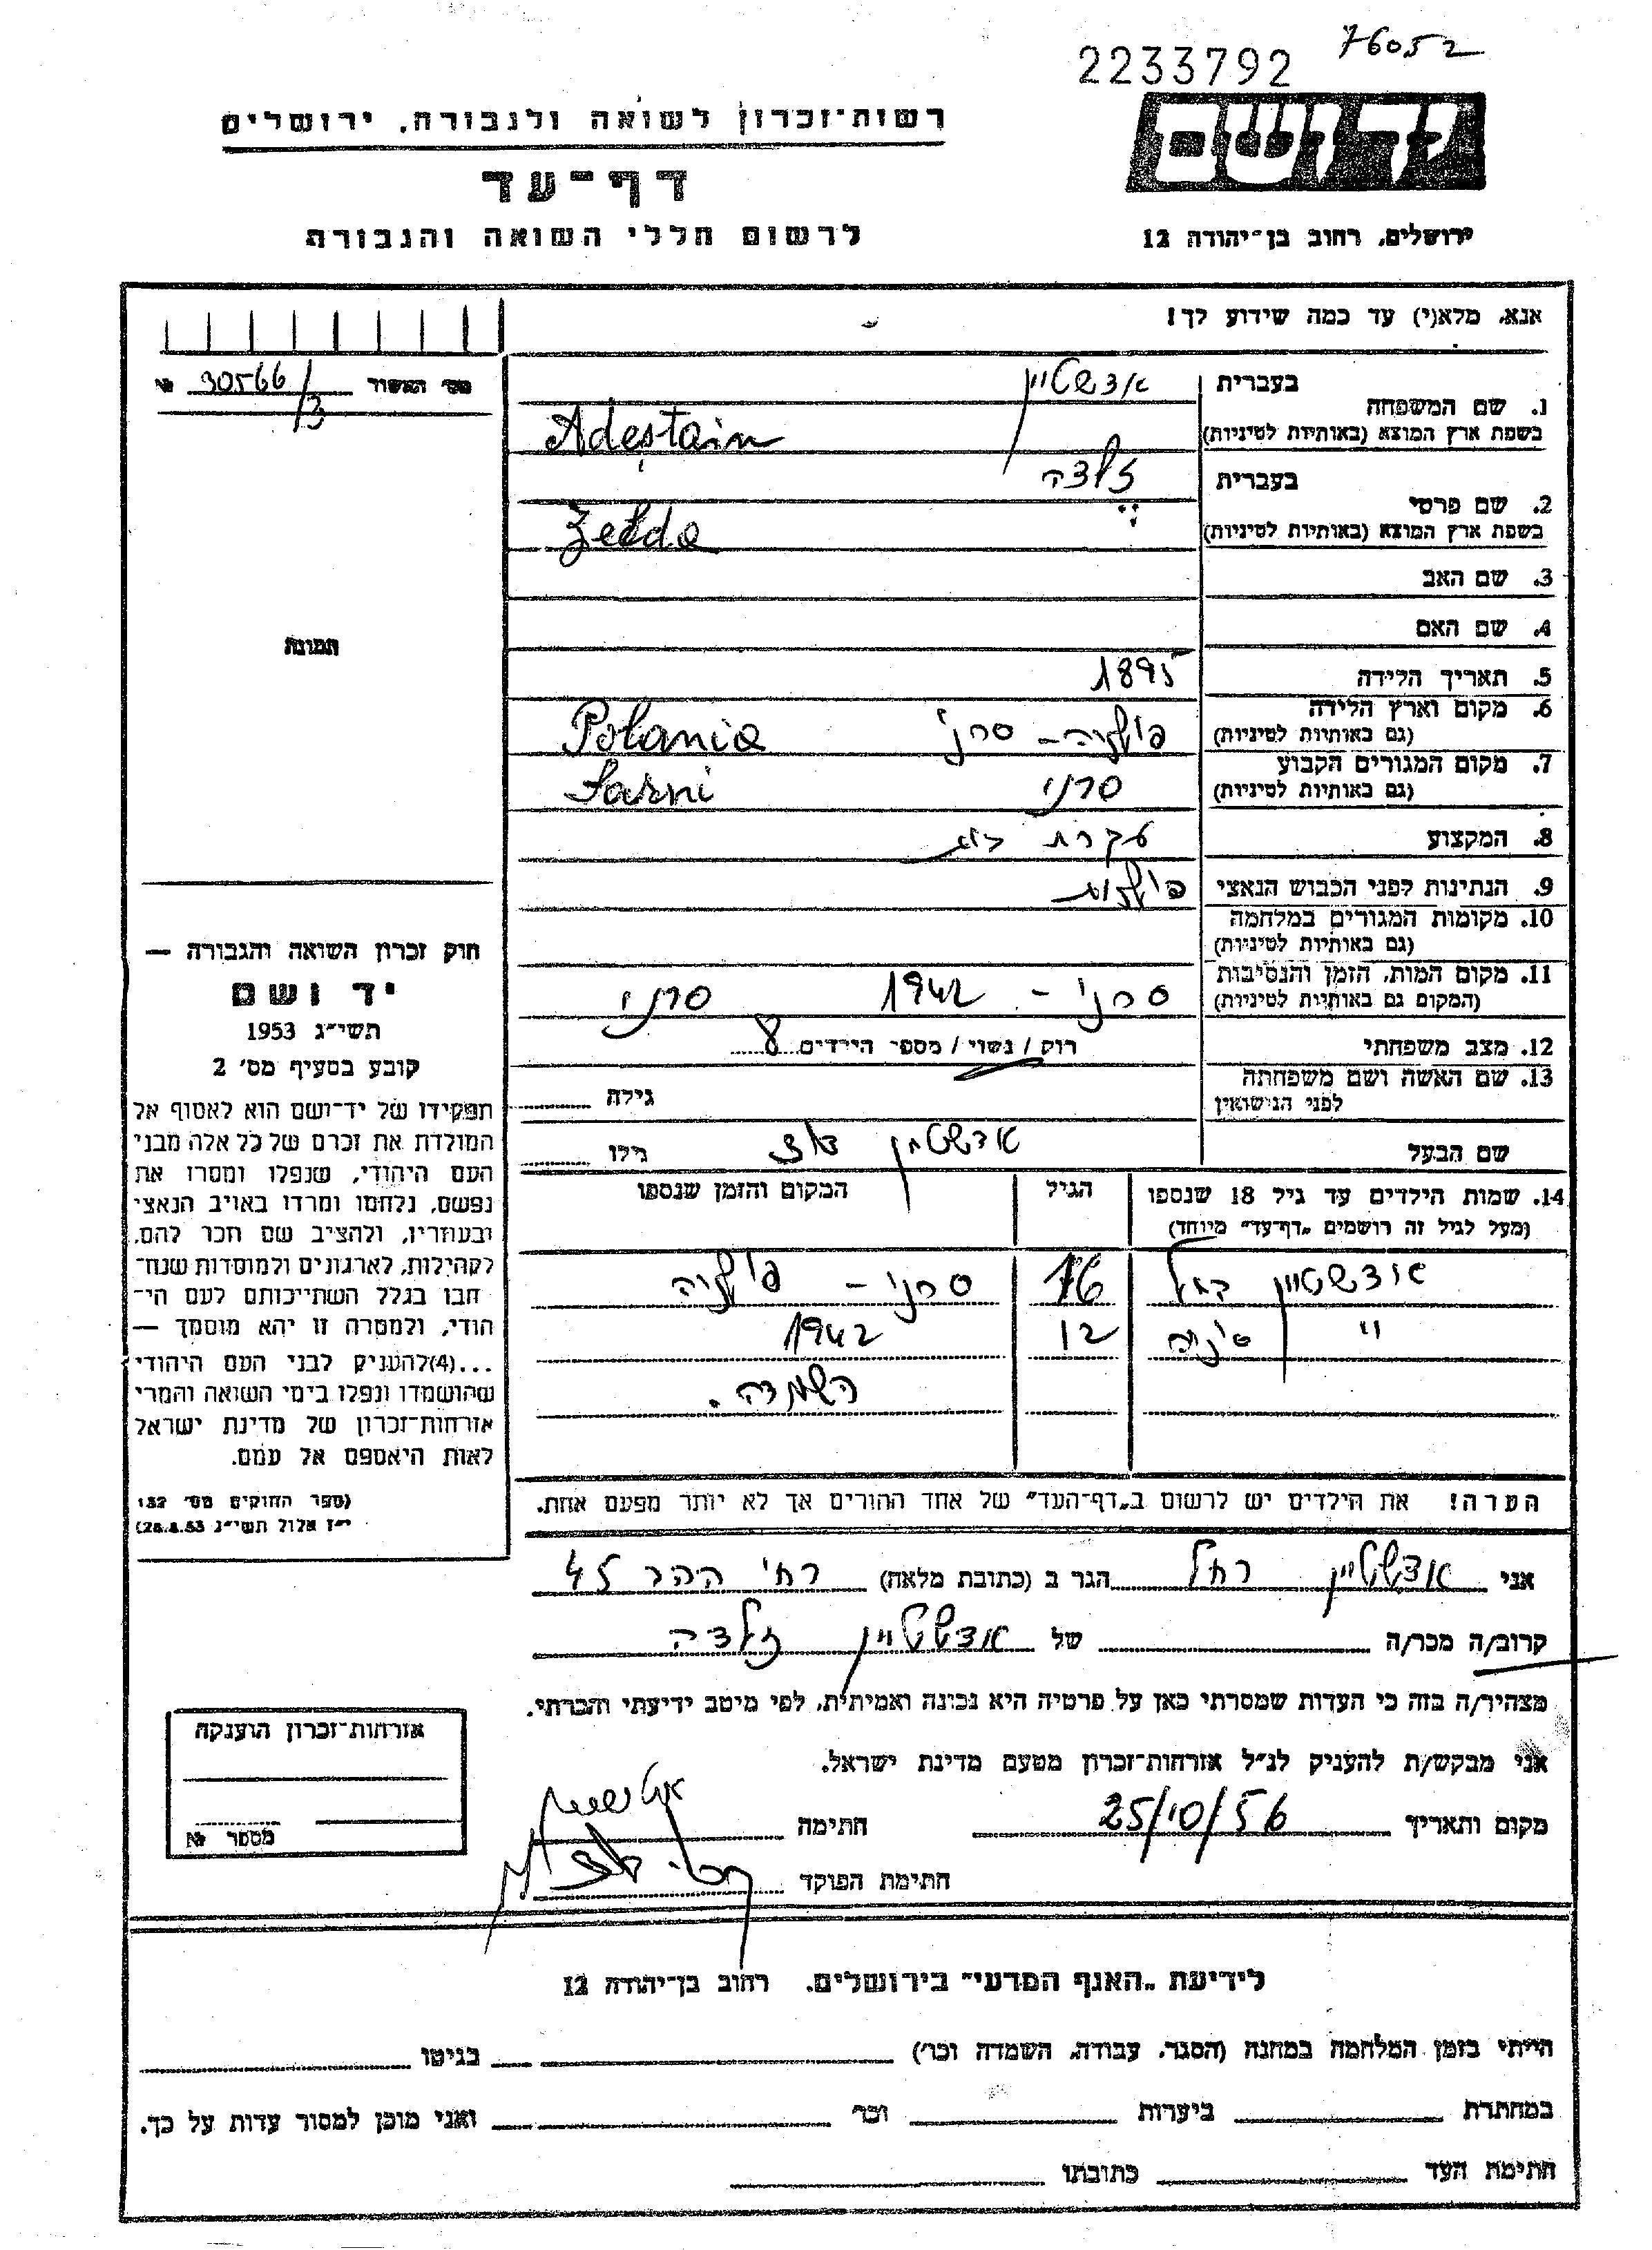 2233792 76052
יד ושם
רשות־זכרון לשואה ולגבורה, ירושלים
דף־עד
לרשום חללי השואה והגבורה
ירושלים, רחוב בן־יהודה 12
אנא, מלא(י) עד כמה שידוע לך!
מס' האשור 30566/3 №
1. שם המשפחה
בעברית אדשטיין
בשפת ארץ המוצא (באותיות לטיניות) Adeştain
2. שם פרטי
בעברית זלדה
בשפת ארץ המוצא (באותיות לטיניות) Zelda
3. שם האב
4. שם האם
5. תאריך הלידה 1895
6. מקום וארץ הלידה פולניה - סרני Polania
(גם באותיות לטיניות)
7. מקום המגורים הקבוע סרני Sarni
(גם באותיות לטיניות)
8. המקצוע עקרת בית
9. הנתינות לפני הכבוש הנאצי פולנית
10. מקומות המגורים במלחמה
(גם באותיות לטיניות)
11. מקום המות, הזמן והנסיבות סרני - 1942 סרני
(המקום גם באותיות לטיניות)
12. מצב משפחתי רוק / נשוי / מספר הילדים 8
13. שם האשה ושם משפחתה
לפני הנישואין גילה
שם הבעל אדשטיין דוד גילו
14. שמות הילדים עד גיל 18 שנספו הגיל המקום והזמן שנספו
(מעל לגיל זה רושמים "דף־עד" מיוחד)
אדשטיין 16 סרני - פולניה
" 12 1942
השמדה.
הערה! את הילדים יש לרשום ב"דף־העד" של אחד ההורים אך לא יותר מפעם אחת.
תמונה
חוק זכרון השואה והגבורה —
יד ושם
תשי"ג 1953
קובע בסעיף מס' 2
תפקידו של יד־ושם הוא לאסוף אל
המולדת את זכרם של כל אלה מבני
העם היהודי, שנפלו ומסרו את
נפשם, נלחמו ומרדו באויב הנאצי
ובעוזריו, ולהציב שם וזכר להם,
לקהילות, לארגונים ולמוסדות שנח־
רבו בגלל השתייכותם לעם הי־
הודי, ולמטרה זו יהא מוסמך —
...(4) להעניק לבני העם היהודי
שהושמדו ונפלו בימי השואה והמרי
אזרחות־זכרון של מדינת ישראל
לאות היאספם אל עמם.
(ספר החוקים מס' 132
י"ז אלול תשי"ג 28.8.53)
אני אדשטיין רחל הגר ב (כתובת מלאה) רח' ההר 45
קרוב/ה מכר/ה של אדשטיין זלדה
מצהיר/ה בזה כי העדות שמסרתי כאן על פרטיה היא נכונה ואמיתית, לפי מיטב ידיעתי והכרתי.
אני מבקש/ת להעניק לנ"ל אזרחות־זכרון מטעם מדינת ישראל.
מקום ותאריך 25/10/56 חתימה
חתימת הפוקד
אזרחות־זכרון הוענקה
מספר №
לידיעת "האגף המדעי" בירושלים, רחוב בן־יהודה 12
הייתי בזמן המלחמה במחנה (הסגר, עבודה, השמדה וכו') בגיטו
במחתרת ביערות וכו' ואני מוכן למסור עדות על כך.
חתימת העד כתובתו